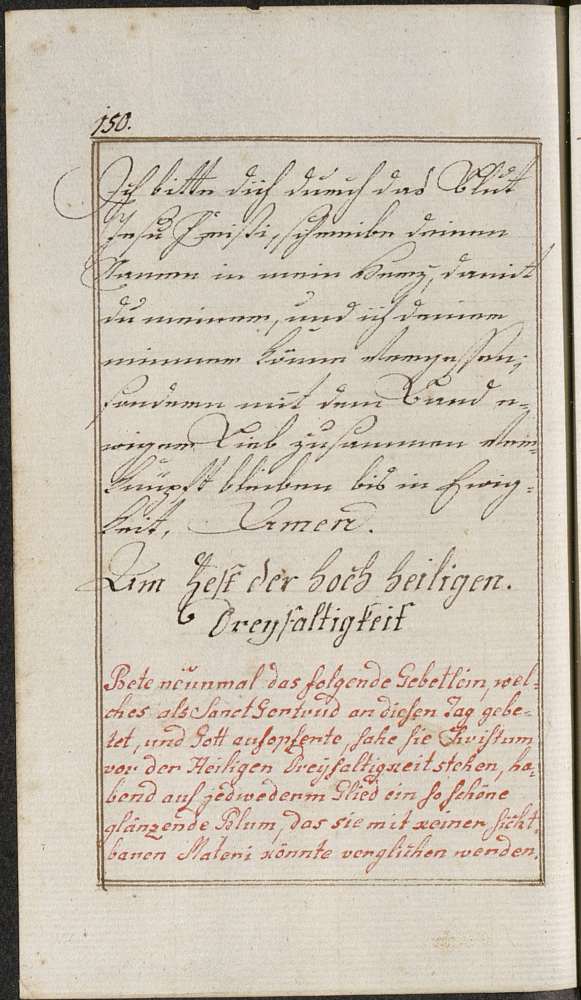 150.
Ich bitte dich durch das Blut
Jesu Christi, schreibe deinen
Namen in mein Herz, damit
du meiner, und ich deiner
nimmer könne vergessen,
sondern mit dem Band e-
wiger Lieb zusammen ver-
knüpft bleiben bis in Ewig-
keit. Amen.
Am Fest der hoch heiligen.
Dreyfaltigkeit
Bete neünmal das folgende Gebetlein, wel-
ches als Sanct Gertrud an diesen Tag gebe-
tet, und Gott aufopferte, sahe sie Christum
vor der Heiligen Dreyfaltigkeit stehen, ha-
bend auf jedwederm Glied ein so schöne
glänzende Blum, das sie mit keiner sicht-
baren Materi könnte verglichen werden.